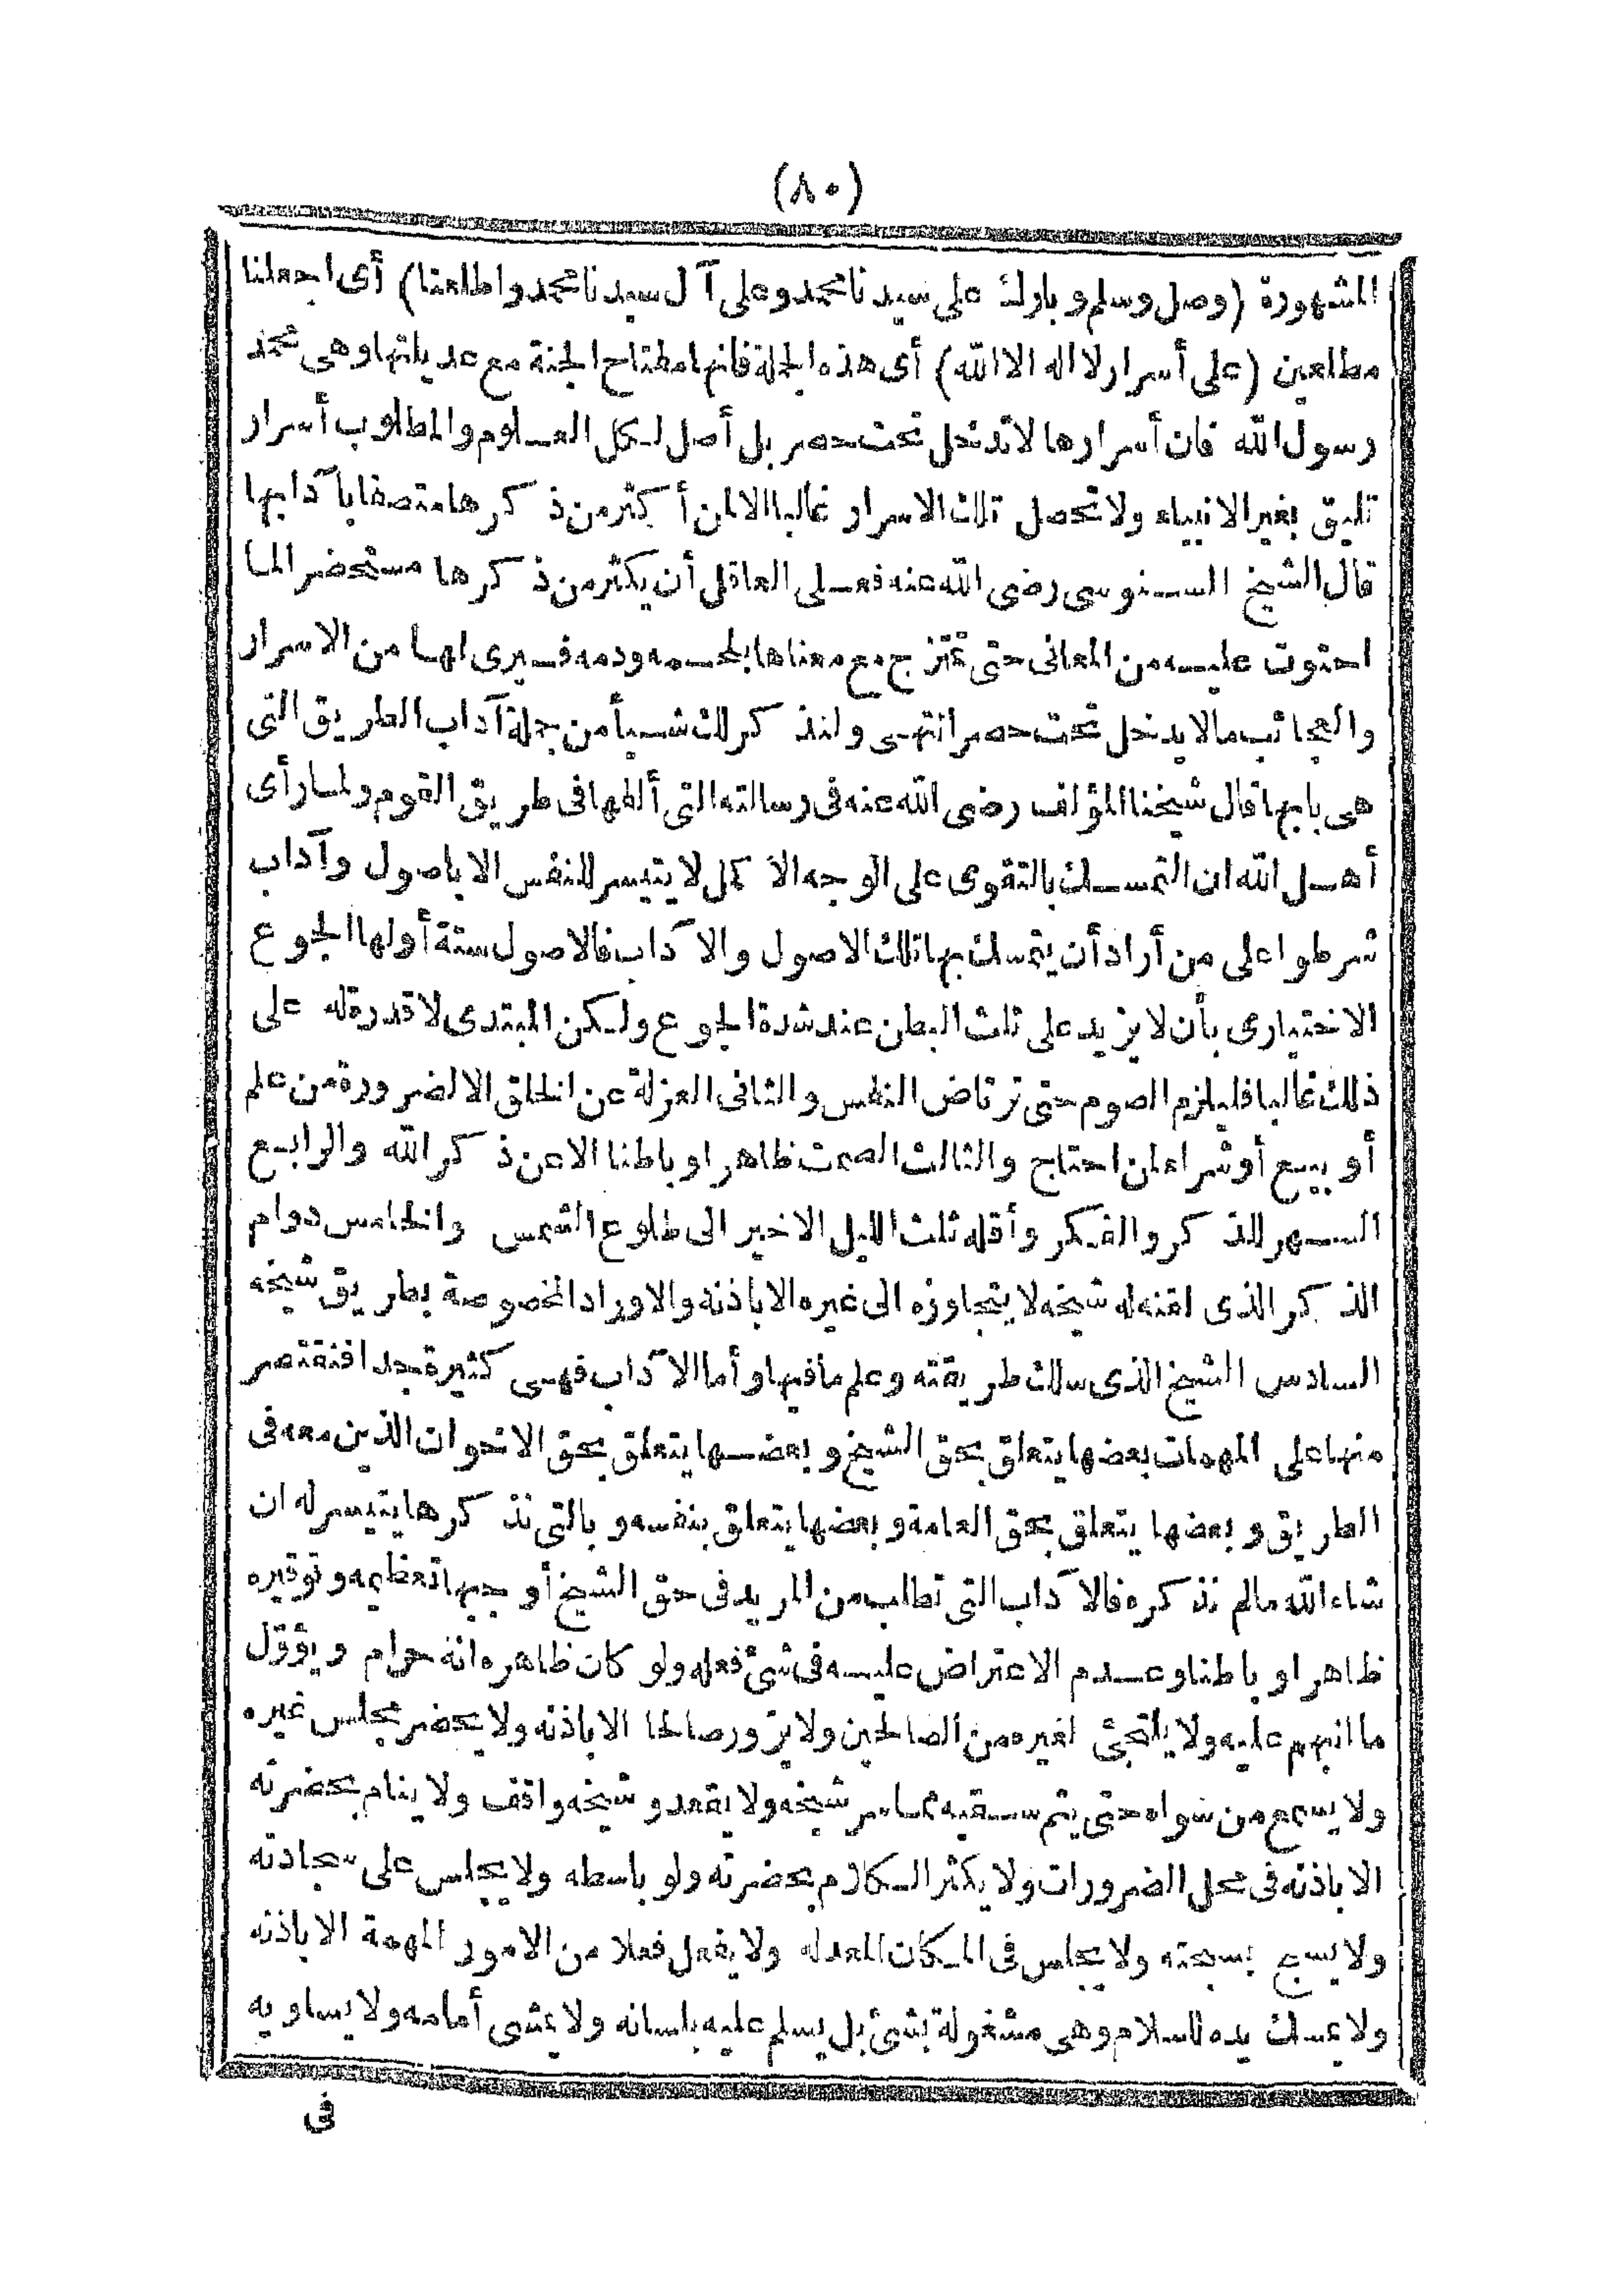 (٨٠)
المشهورة (وصل وسلم وبارك على سيدنا محمد وعلى آل سيدنا محمد واطلعنا) أى اجعلنا
مطلعين (على أسرار لا اله الا الله) أى هذه الجملة فانها مفتاح الجنة مع عديلتها وهى محمد
رسول الله فان أسرارها لا تدخل تحت حصر بل أصل لكل العلوم والمطلوب أسرار
تليق بغير الانبياء ولا تحصل تلك الاسرار غالبا الا لمن أكثر من ذكرها متصفا بآدابها
قال الشيخ السنوسى رضى الله عنه فعلى العاقل أن يكثر من ذكرها مستحضرا لما
احتوت عليه من المعانى حتى تمتزج مع معناها بلحمه ودمه فيرى لها من الاسرار
والعجائب مالا يدخل تحت حصر انتهى ولنذكر لك شيأ من جملة آداب الطريق التى
هى بابها قال شيخنا المؤلف رضى الله عنه فى رسالته التى ألفها فى طريق القوم ولما رأى
أهل الله ان التمسك بالتقوى على الوجه الاكمل لا يتيسر للنفس الا باصول وآداب
شرطوا على من أراد أن يتمسك بها تلك الاصول والآداب فالاصول ستة أولها الجوع
الاختيارى بأن لا يزيد على ثلث البطن عند شدة الجوع ولكن المبتدى لا قدرة له على
ذلك غالبا فليلزم الصوم حتى ترتاض النفس والثانى العزلة عن الخلق الا لضرورة من علم
أو بيع أو شراء لمن احتاج والثالث الصمت ظاهرا وباطنا الا عن ذكر الله والرابع
السهر للذكر والفكر وأقله ثلث الليل الاخير الى طلوع الشمس والخامس دوام
الذكر الذى لقنه له شيخه لا يتجاوزه الى غيره الا باذنه والاوراد المخصوصة بطريق شيخه
السادس الشيخ الذى سلك طريقته وعلم ما فيها وأما الآداب فهى كثيرة جدا فنقتصر
منها على المهمات بعضها يتعلق بحق الشيخ وبعضها يتعلق بحق الاخوان الذين معه فى
الطريق وبعضها يتعلق بحق العامة وبعضها يتعلق بنفسه وبالتى نذكرها يتيسر له ان
شاء الله مالم نذكره فالآداب التى تطلب من المريد فى حق الشيخ أوجبها تعظيمه وتوقيره
ظاهرا وباطنا وعدم الاعتراض عليه فى شئ فعله ولو كان ظاهره انه حرام ويؤوّل
ما انبهم عليه ولا يلتجئ لغيره من الصالحين ولا يزور صالحا الا باذنه ولا يحضر مجلس غيره
ولا يسمع من سواه حتى يتم سقيه من ماء سر شيخه ولا يقعد وشيخه واقف ولا ينام بحضرته
الا باذنه فى محل الضرورات ولا يكثر الكلام بحضرته ولو باسطه ولا يجلس على سجادته
ولا يسبح بسبحته ولا يجلس فى المكان المعد له ولا يفعل فعلا من الامور المهمة الا باذنه
ولا يمسك يده للسلام وهى مشغولة بشئ بل يسلم عليه بلسانه ولا يمشى أمامه ولا يساويه
فى